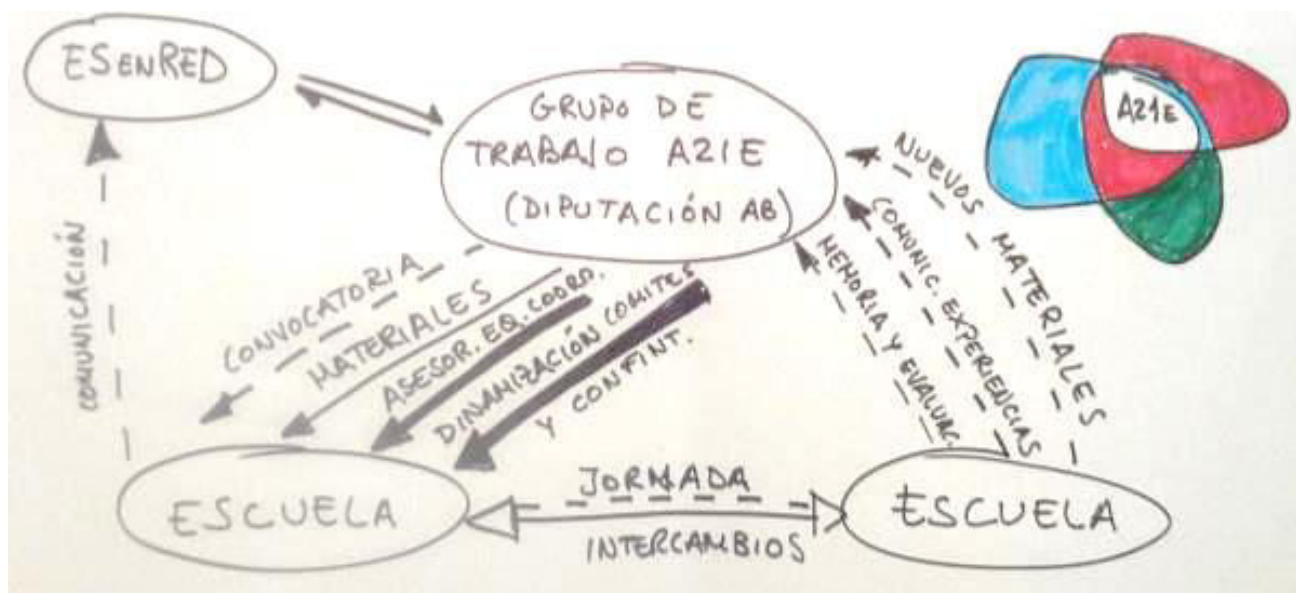 ESENRED
GRUPO DE
TRABAJO A21E
(DIPUTACIÓN AB)
A21E
COMUNICACIÓN
CONVOCATORIA
MATERIALES
ASESOR. EQ. COORD.
DINAMIZACIÓN COMITES
Y CONFINT.
MEMORIA Y EVALUAC.
COMUNIC. EXPERIENCIAS
NUEVOS MATERIALES
ESCUELA
JORNADA
INTERCAMBIOS
ESCUELA